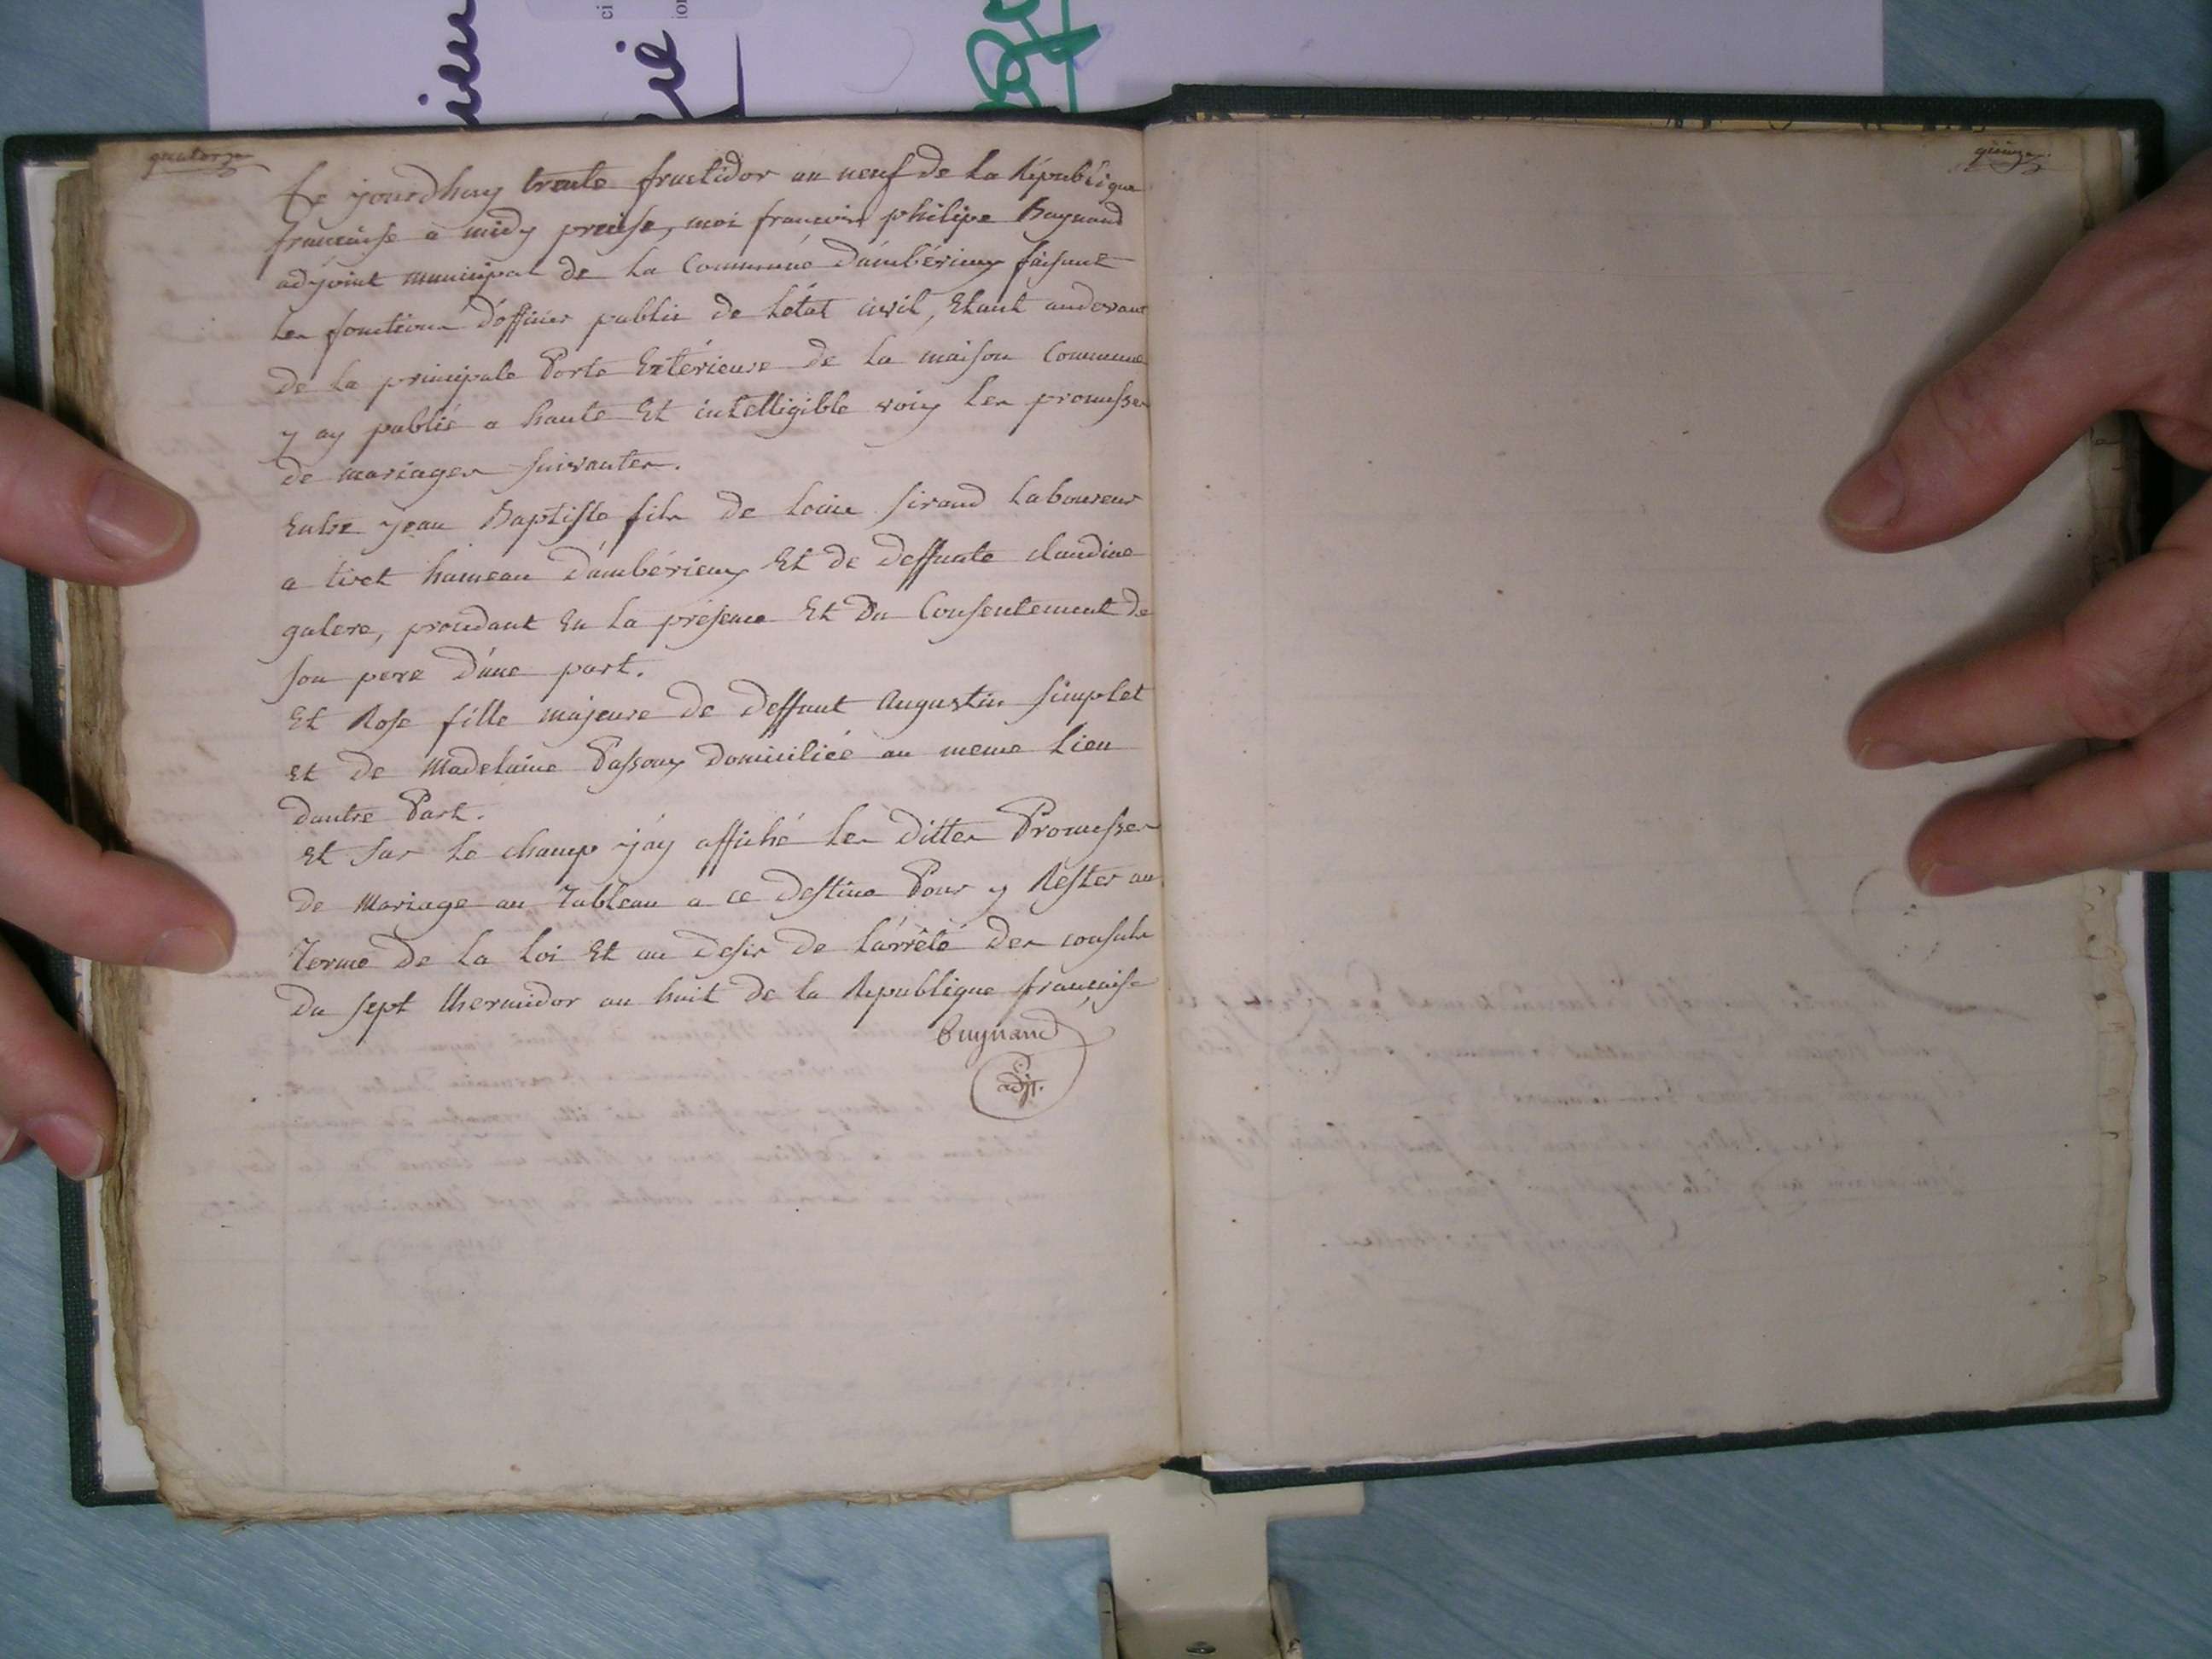 quatorze
Ce jourdhuy trente fructidor an neuf de La République
francaise a midy presise, moi francois philipe Bugnand
adjoint municipal de La Commune d'ambérieux faisant
les fonctions d'officier public de L'état civil, Etant audevant
de La principale Porte Extérieure de La maison Commune
y ay publié a haute Et intelligible voix Les promesses
de mariages suivantes.
Entre jean Baptiste fils de Louis Siraud Laboureur
a tiret hameau d'ambérieux Et de deffunte claudine
galere, procedant En La présence Et Du Consentement de
son pere D'une part.
Et Rose fille majeure de deffunt Augustin Simplet
Et De Madelaine Passoux Domiciliée au meme Lieu
Dautre Part.
Et Sur Le champ j'ay affiché Les Dittes Promesses
De Mariage au Tableau a ce Destiné Pour y Rester au
Terme De La Loi Et au desir De L'arrêté des consuls
du sept thermidor an huit de la Republique française
Bugnand
adjt.
quinze